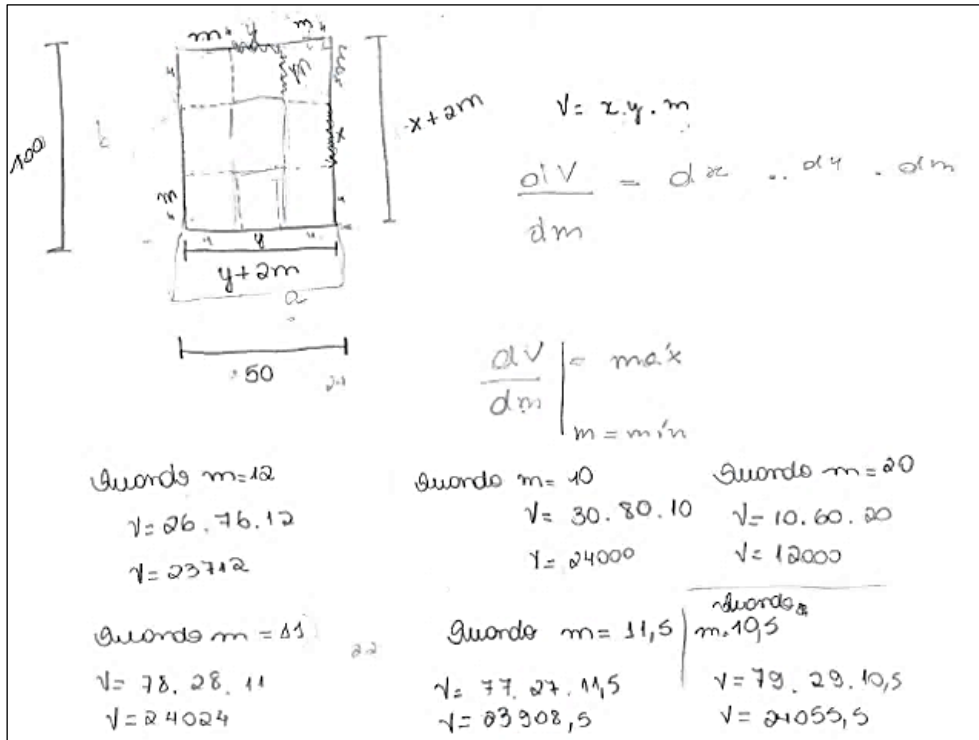 m y m
m
100
x
x+2m
m
y
y+2m
a
50
V= x.y.m
dV/dm = dx .. dy . dm
dV/dm | = máx
m = mín
Quando m=12
V= 26.76.12
V= 23712
Quando m= 10
V= 30.80.10
V= 24000
Quando m=20
V= 10.60.20
V= 12000
Quando m =11
V= 78.28.11
V= 24024
Quando m= 11,5
V= 77.27.11,5
V= 23908,5
Quando
m=10,5
V= 79.29.10,5
V= 24055,5